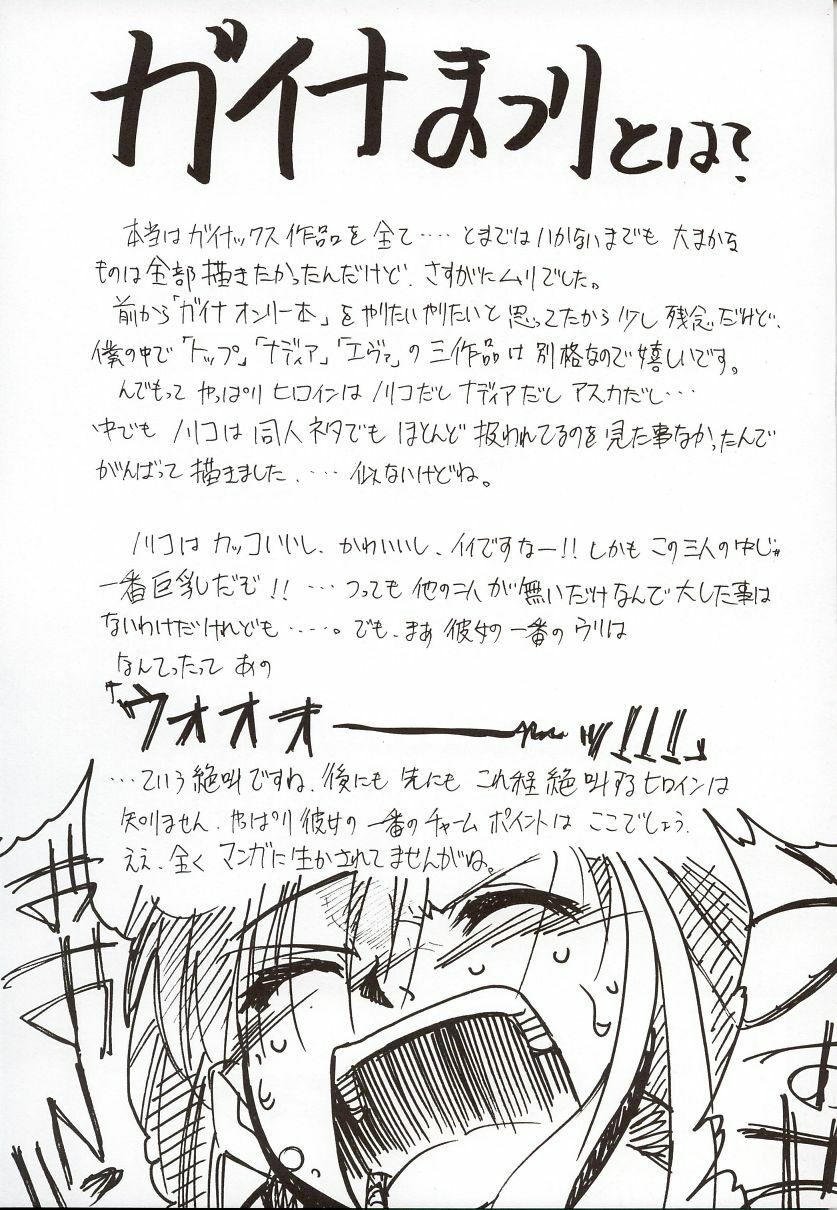 ガイナまつりとは?
本当はガイナックス作品を全て‥‥とまではいかないまでも大まかな
ものは全部描きたかったんだけど、さすがにムリでした。
前から「ガイナオンリー本」をやりたいやりたいと思ってたから少し残念だけど、
僕の中で「トップ」「ナディア」「エヴァ」の三作品は別格なので嬉しいです。
んでもって やっぱり ヒロインは ノリコだし ナディアだし アスカだし…
中でも ノリコは 同人ネタでも ほとんど 扱われてるのを 見た事なかったんで
がんばって 描きました、‥‥ 似ないけどね。
ノリコは カッコいいし、かわいいし、イイですなー!! しかも この三人の中じゃ
一番巨乳だぞ!! …つっても 他の二人が 無いだけなんで 大した事は
ないわけだけれども ‥‥‥。でも、まあ 彼女の 一番の ウリは
なんてったって あの
「ウオオオーーッ!!!」
…ていう 絶叫ですね、後にも 先にも これ程 絶叫する ヒロインは
知りません、やっぱり 彼女の 一番の チャーム ポイントは ここでしょう、
ええ、全く マンガに 生かされて ませんがね。